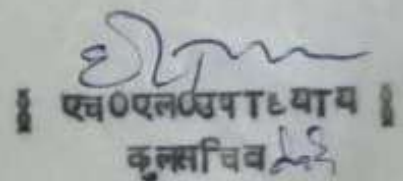 एच०एल०उपाध्याय
कुलसचिव